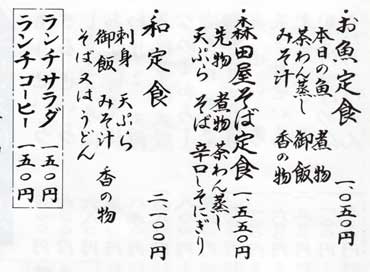 ・お魚定食 一、〇五〇円
本日の魚 煮物
茶わん蒸し 御飯
みそ汁 香の物
・森田屋そば定食 一、五五〇円
先物 煮物 茶わん蒸し
天ぷら そば 辛口しそにぎり
・和定食 二一〇〇円
刺身 天ぷら
御飯 みそ汁 香の物
そば又はうどん
ランチサラダ 一五〇円
ランチコーヒー 一五〇円